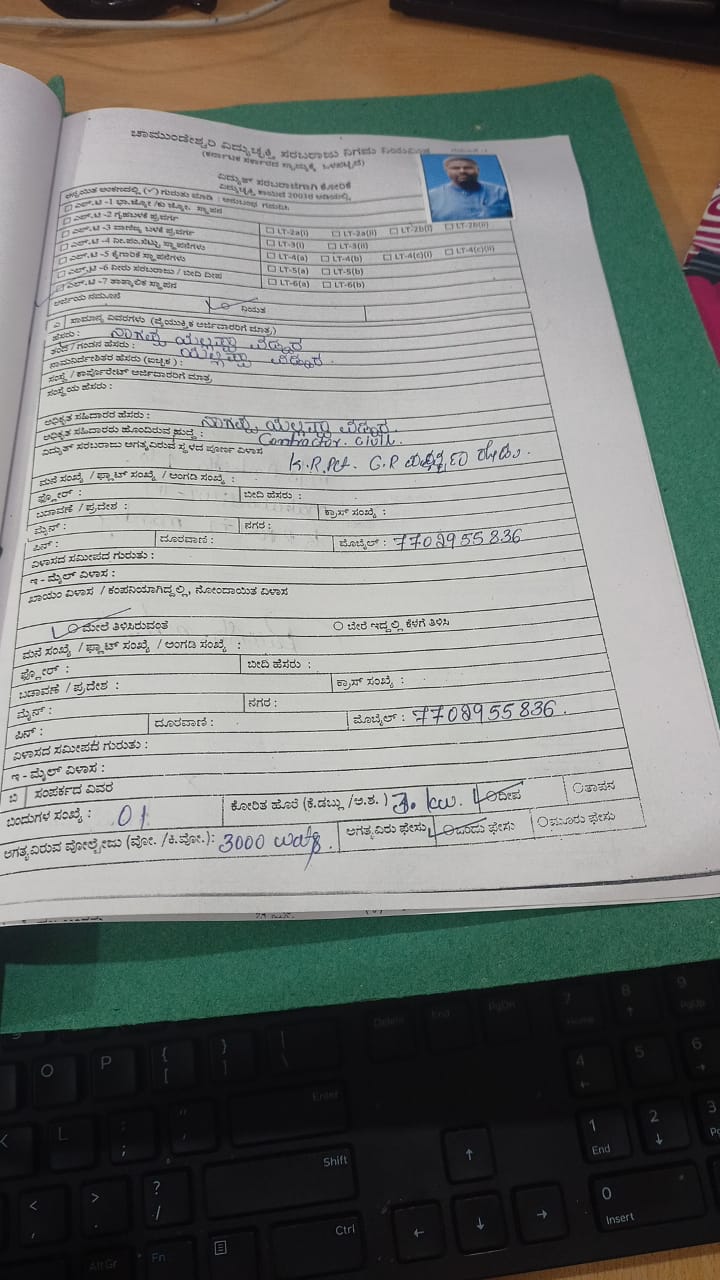 ಚಾಮುಂಡೇಶ್ವರಿ ವಿದ್ಯುಚ್ಛಕ್ತಿ ಸರಬರಾಜು ನಿಗಮ ನಿಯಮಿತ
(ಕರ್ನಾಟಕ ಸರ್ಕಾರದ ಸ್ವಾಮ್ಯಕ್ಕೆ ಒಳಪಟ್ಟಿದೆ)
ವಿದ್ಯುತ್ ಸರಬರಾಜಿಗಾಗಿ ಕೋರಿಕೆ
ವಿದ್ಯುಚ್ಛಕ್ತಿ ಕಾಯಿದೆ 2003ರ ಅಡಿಯಲ್ಲಿ
ಅನ್ವಯಿತ ಅಂಕಣದಲ್ಲಿ (✓) ಗುರುತು ಮಾಡಿ : ಅನುಬಂಧ ಗಮನಿಸಿ
☐ ಎಲ್.ಟಿ -1 ಭಾ.ಜ್ಯೋ /ಕು ಜ್ಯೋ. ಸ್ಥಾಪನ
☐ ಎಲ್.ಟಿ -2 ಗೃಹಬಳಕೆ ಪ್ರವರ್ಗ ☐ LT-2a(i) ☐ LT-2a(ii) ☐ LT-2b(i) ☐ LT-2b(ii)
☐ ಎಲ್.ಟಿ -3 ವಾಣಿಜ್ಯ ಬಳಕೆ ಪ್ರವರ್ಗ ☐ LT-3(i) ☐ LT-3(ii)
☐ ಎಲ್.ಟಿ -4 ನೀ.ಪಂ.ಸೆಟ್ಟು ಸ್ಥಾಪನೆಗಳು ☐ LT-4(a) ☐ LT-4(b) ☐ LT-4(c)(i) ☐ LT-4(c)(ii)
☐ ಎಲ್.ಟಿ -5 ಕೈಗಾರಿಕೆ ಸ್ಥಾಪನೆಗಳು ☐ LT-5(a) ☐ LT-5(b)
☐ ಎಲ್.ಟಿ -6 ನೀರು ಸರಬರಾಜು / ಬೀದಿ ದೀಪ ☐ LT-6(a) ☐ LT-6(b)
☐ ಎಲ್.ಟಿ -7 ತಾತ್ಕಾಲಿಕ ಸ್ಥಾಪನ
ಅರ್ಜಿಯ ನಮೂನೆ ನಿಯತ
ಎ) ಸಾಮಾನ್ಯ ವಿವರಗಳು (ವೈಯುಕ್ತಿಕ ಅರ್ಜಿದಾರರಿಗೆ ಮಾತ್ರ)
ಹೆಸರು : ನಾಗಪ್ಪ ಯಲ್ಲಪ್ಪಾ
ತಂದೆ / ಗಂಡನ ಹೆಸರು : ಯಲ್ಲಪ್ಪಾ
ನಾಮನಿರ್ದೇಶಿತರ ಹೆಸರು (ಐಚ್ಛಿಕ) :
ಸಂಸ್ಥೆ / ಕಾರ್ಪೊರೇಟ್ ಅರ್ಜಿದಾರರಿಗೆ ಮಾತ್ರ
ಸಂಸ್ಥೆಯ ಹೆಸರು :
ಅಧಿಕೃತ ಸಹಿದಾರರ ಹೆಸರು : ನಾಗಪ್ಪ ಯಲ್ಲಪ್ಪಾ
ಅಧಿಕೃತ ಸಹಿದಾರರು ಹೊಂದಿರುವ ಹುದ್ದೆ : Contractor. civil.
ವಿದ್ಯುತ್ ಸರಬರಾಜು ಅಗತ್ಯವಿರುವ ಸ್ಥಳದ ಪೂರ್ಣ ವಿಳಾಸ K.R.Pet. G.R
ಮನೆ ಸಂಖ್ಯೆ / ಫ್ಲಾಟ್ ಸಂಖ್ಯೆ / ಅಂಗಡಿ ಸಂಖ್ಯೆ :
ಫ್ಲೋರ್ : ಬೀದಿ ಹೆಸರು :
ಬಡಾವಣೆ / ಪ್ರದೇಶ : ಕ್ರಾಸ್ ಸಂಖ್ಯೆ :
ಮೈನ್ : ನಗರ :
ಪಿನ್ : ದೂರವಾಣಿ : ಮೊಬೈಲ್ : 7702955836
ವಿಳಾಸದ ಸಮೀಪದ ಗುರುತು :
ಇ - ಮೈಲ್ ವಿಳಾಸ :
ಖಾಯಂ ವಿಳಾಸ / ಕಂಪನಿಯಾಗಿದ್ದಲ್ಲಿ, ನೋಂದಾಯಿತ ವಿಳಾಸ
ಮೇಲೆ ತಿಳಿಸಿರುವಂತೆ ○ ಬೇರೆ ಇದ್ದಲ್ಲಿ ಕೆಳಗೆ ತಿಳಿಸಿ
ಮನೆ ಸಂಖ್ಯೆ / ಫ್ಲಾಟ್ ಸಂಖ್ಯೆ / ಅಂಗಡಿ ಸಂಖ್ಯೆ :
ಫ್ಲೋರ್ : ಬೀದಿ ಹೆಸರು :
ಬಡಾವಣೆ / ಪ್ರದೇಶ : ಕ್ರಾಸ್ ಸಂಖ್ಯೆ :
ಮೈನ್ : ನಗರ :
ಪಿನ್ : ದೂರವಾಣಿ : ಮೊಬೈಲ್ : 7702955836.
ವಿಳಾಸದ ಸಮೀಪದ ಗುರುತು :
ಇ - ಮೈಲ್ ವಿಳಾಸ :
ಬಿ) ಸಂಪರ್ಕದ ವಿವರ
ಬಿಂದುಗಳ ಸಂಖ್ಯೆ : 01 ಕೋರಿತ ಹೊರೆ (ಕೆ.ಡಬ್ಲು /ಅ.ಶ. ) 3. kw. ದೀಪ ○ತಾಪನ
ಅಗತ್ಯವಿರುವ ವೋಲ್ಟೇಜು (ವೋ. /ಕಿ.ವೋ.): 3000 ಅಗತ್ಯವಿರು ಫೇಸು ಒಂದು ಫೇಸು ○ಮೂರು ಫೇಸು
O P { [ } ] | \ Delete End PgDn 7 Home 8 ↑ 9 PgUp
K L : ; " ' Enter 4 ← 5 6 →
< , > . ? / Shift ↑ 1 End 2 ↓ 3
AltGr Fn Ctrl ← ↓ → 0 Insert